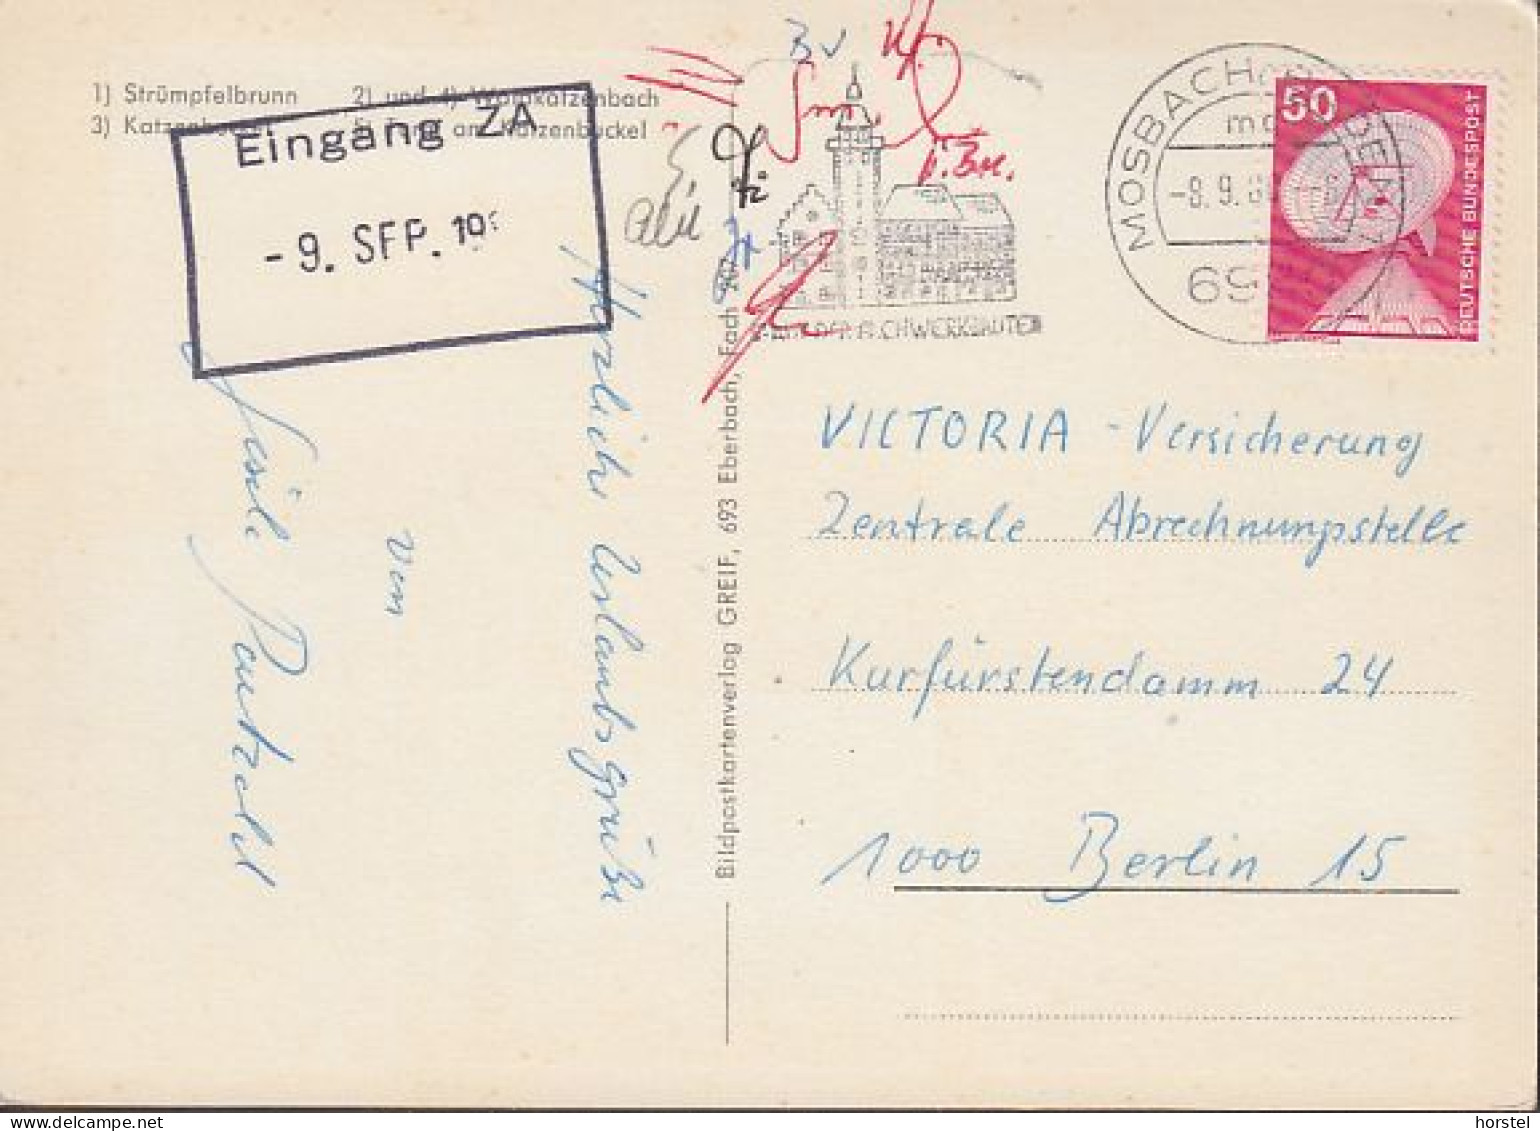 1) Strümpfelbrunn 2) und 4) Waldkatzenbach
3) Katzenbuckel am Katzenbuckel
Eingang ZA
-9. SEP. 19
Herzliche Urlaubsgrüße
von
Bildpostkartenverlag GREIF, 693 Eberbach, Fach
MOSBACH
-8. 9.
50
DEUTSCHE BUNDESPOST
VICTORIA - Versicherung
Zentrale Abrechnungsstelle
Kurfürstendamm 24
1000 Berlin 15